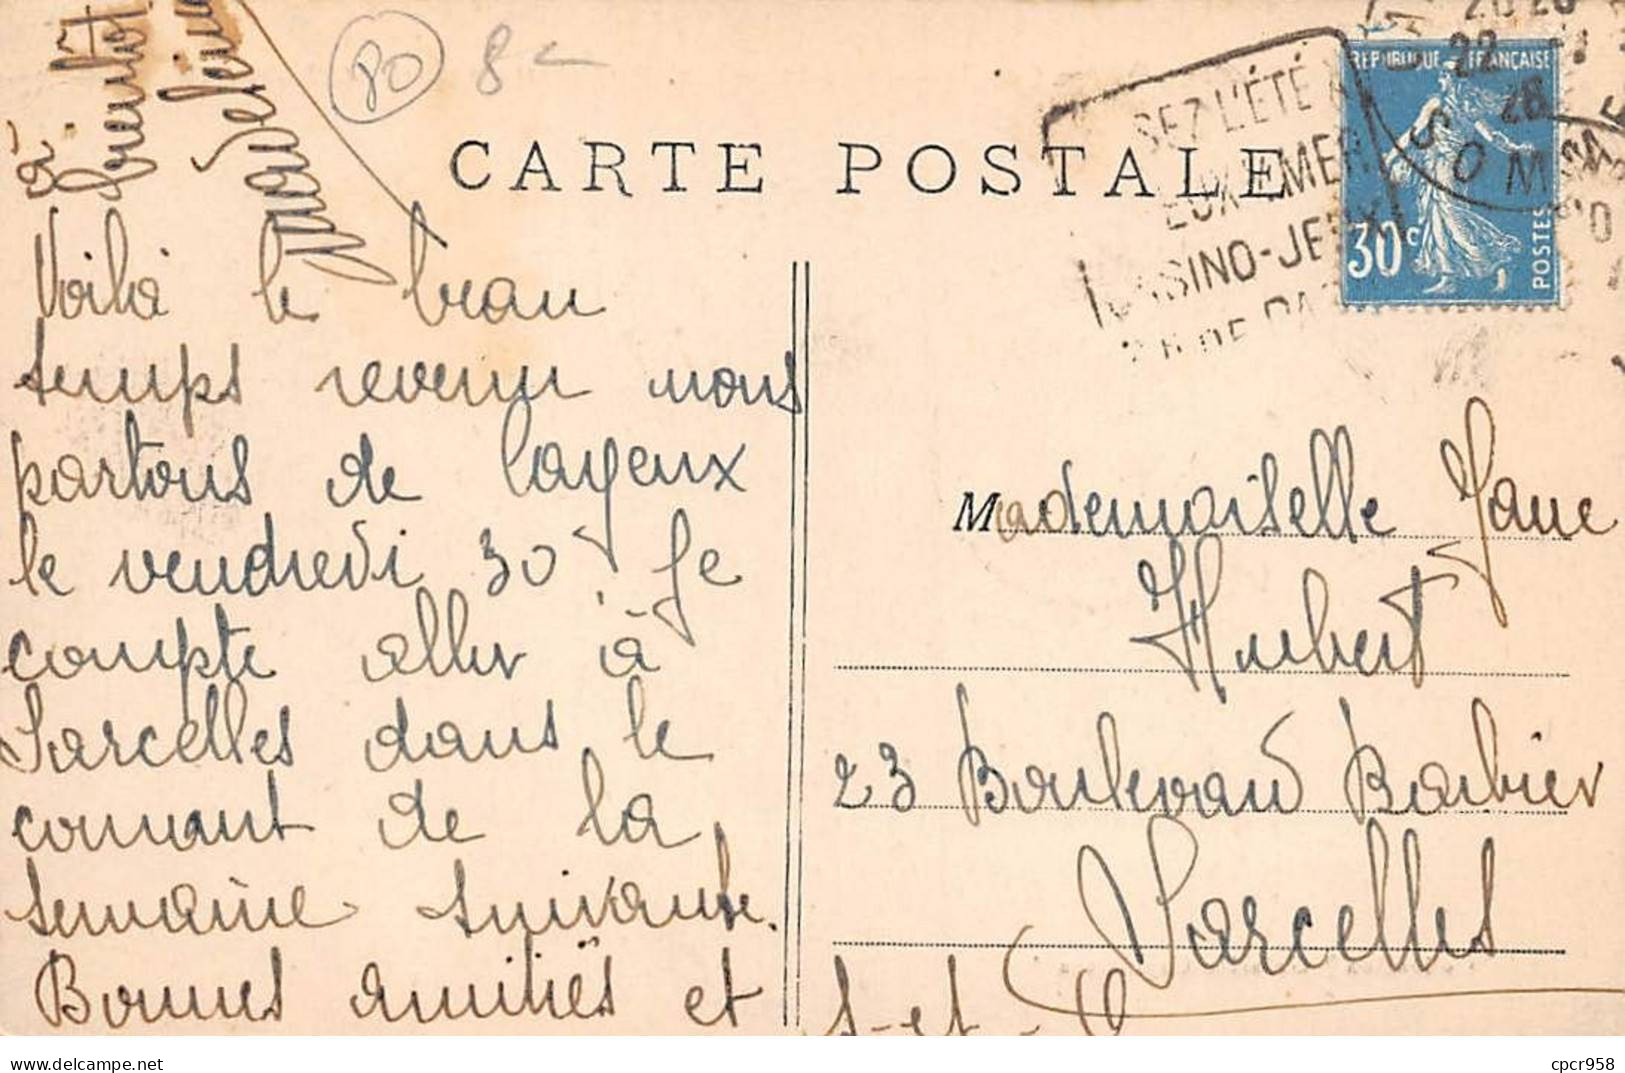 à
bientôt
Madeleine
80
8
CARTE POSTALE
SEZ L'ÉTÉ
EUX S/MER
CASINO-JE
REPUBLIQUE FRANÇAISE
30c
POSTES
22
26
SOMME
Voilà le beau
temps revenu nous
partons de Cayeux
le vendredi 30 Je
compte aller à
Sarcelles dans le
courant de la
semaine suivante.
Bonnes amitiés et
Mademoiselle Jane
Hubert
23 Boulevard Barbier
Sarcelles
S-et-O
cpcr958